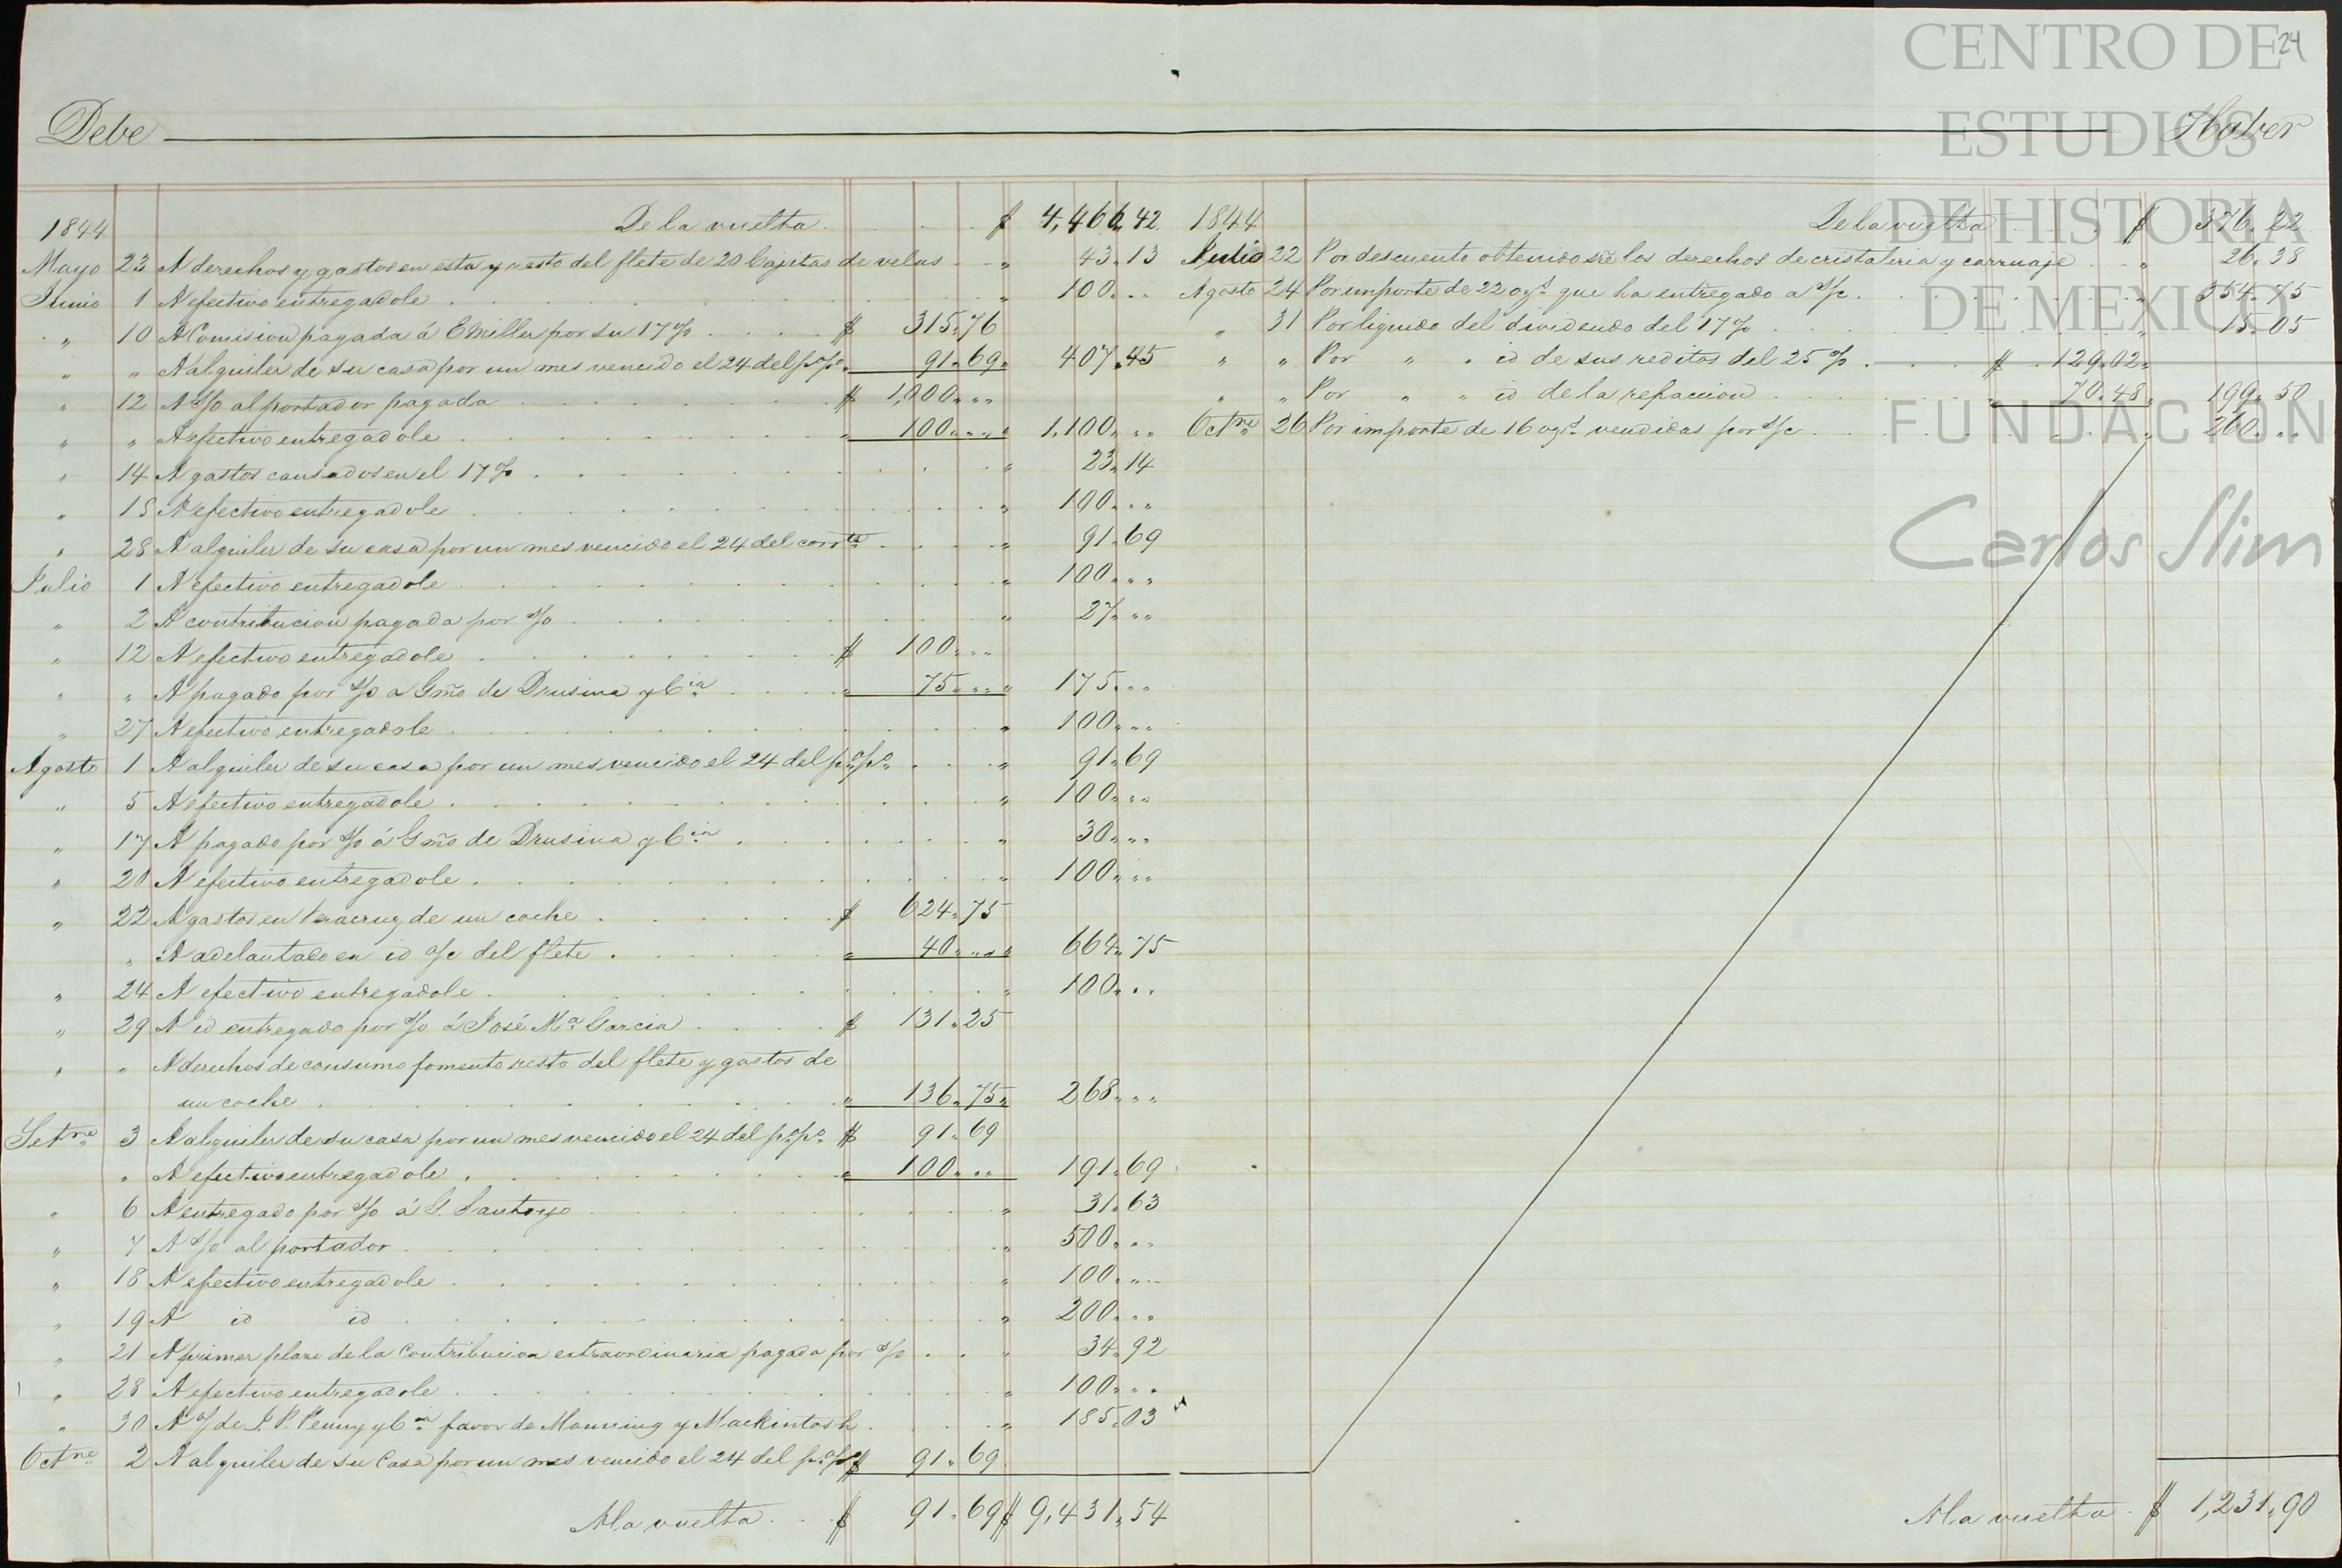 24
Debe Haber
1844 De la vuelta $ 4,466,,42
Mayo 23 A derechos y gastos en esta y resto del flete de 20 Cajitas de velas " 43,,13
Junio 1 A efectivo entregadole " 100,,"
" 10 A Comision pagada á E Miller por su 17% $ 315,,76
" " A alquiler de su casa por un mes vencido el 24 del p.º p.º " 91,,69 " 407,,45
" 12 A s/o al portador pagada $ 1,000,,"
" " A efectivo entregadole " 100,," " 1,100,,"
" 14 A gastos causados en el 17% " 23,,14
" 15 A efectivo entregadole " 100,,"
" 28 A alquiler de su casa por un mes vencido el 24 del corr.te " 91,,69
Julio 1 A efectivo entregadole " 100,,"
" 2 A contribucion pagada por s/o " 27,,"
" 12 A efectivo entregadole $ 100,,"
" " A pagado por s/o a Gmõ de Drusina y C.ia " 75,," " 175,,"
" 27 A efectivo entregadole " 100,,"
Agosto 1 A alquiler de su casa por un mes vencido el 24 del p.º p.º " 91,,69
" 5 A efectivo entregadole " 100,,"
" 17 A pagado por s/o á Gmõ de Drusina y C.ia " 30,,"
" 20 A efectivo entregadole " 100,,"
" 22 A gastos en Veracruz de un coche $ 624,,75
" A adelantado en id a/c del flete " 40,," " 664,,75
" 24 A efectivo entregadole " 100,,"
" 29 A id entregado por s/o á José M.a Garcia $ 131,,25
" " A derechos de consumo fomento resto del flete y gastos de
un coche " 136,,75 " 268,,"
Set.re 3 A alquiler de su casa por un mes vencido el 24 del p.º p.º $ 91,,69
" A efectivo entregadole " 100,," 191,,69
" 6 A entregado por s/o á S. Santoyo " 31,,63
" 7 A s/o al portador " 500,,"
" 18 A efectivo entregadole " 100,,"
" 19 A id id " 200,,"
" 21 A primer plazo de la Contribucion extraordinaria pagada por s/o " 34,,92
" 28 A efectivo entregadole " 100,,"
" 30 A o/ de J. P. Penny y C.ia favor de Manning y Mackintosh " 185,,03
Oct.re 2 A alquiler de su Casa por un mes vencido el 24 del p.º p.º $ 91,,69
A la vuelta $ 91,,69 $ 9,431,,54
1844 De la vuelta $ 376,,22
Julio 22 Por descuento obtenido sre los derechos de cristaleria y carruaje " 26,,38
Agosto 24 Por importe de 22 oz.s que ha entregado a s/c " 354,,75
" 31 Por liquido del dividendo del 17% " 15,,05
" " Por " id de sus reditos del 25% $ 129,,02
" " Por " " id de la refaccion " 70,,48 " 199,,50
Oct.re 26 Por importe de 16 oz.s vendidas por s/c " 260,,"
A la vuelta $ 1,231,,90
CENTRO DE
ESTUDIOS
DE HISTORIA
DE MEXICO
FUNDACIÓN
Carlos Slim